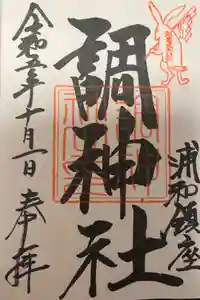 浦和鎮座
調神社
令和五年十月一日奉拝